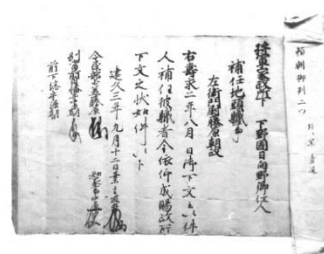 頼朝御判二ツ
将軍家政所下 下野国日向野郷住人
補任地頭職事
左衛門尉藤原朝政
右壽永二年八月日御下文云以件
人補任彼職者今依仰成賜政所
下文之状如件以下
建久三年九月十二日案主藤井
令民部少丞藤原 知家事中原
別當前因幡守中原朝臣
前下総守源朝臣